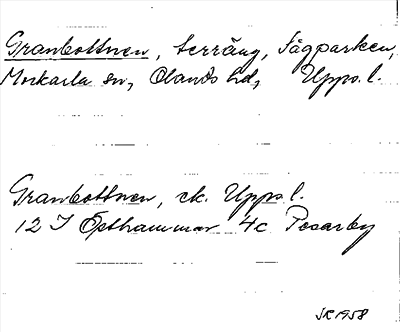 Granbottnen, terräng, Fågparken,
Morkarla sn, Olands hd, Upps. l.
Granbottnen, ek. Upps l.
12 I Östhammar 4c Posarby
SR 1958